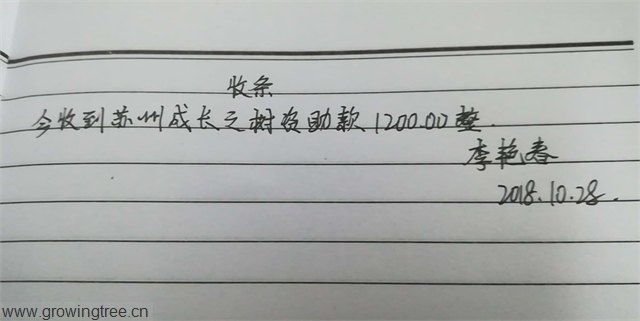 收条
今收到苏州成长之树资助款1200.00整.
李艳春
2018.10.28.
www.growingtree.cn